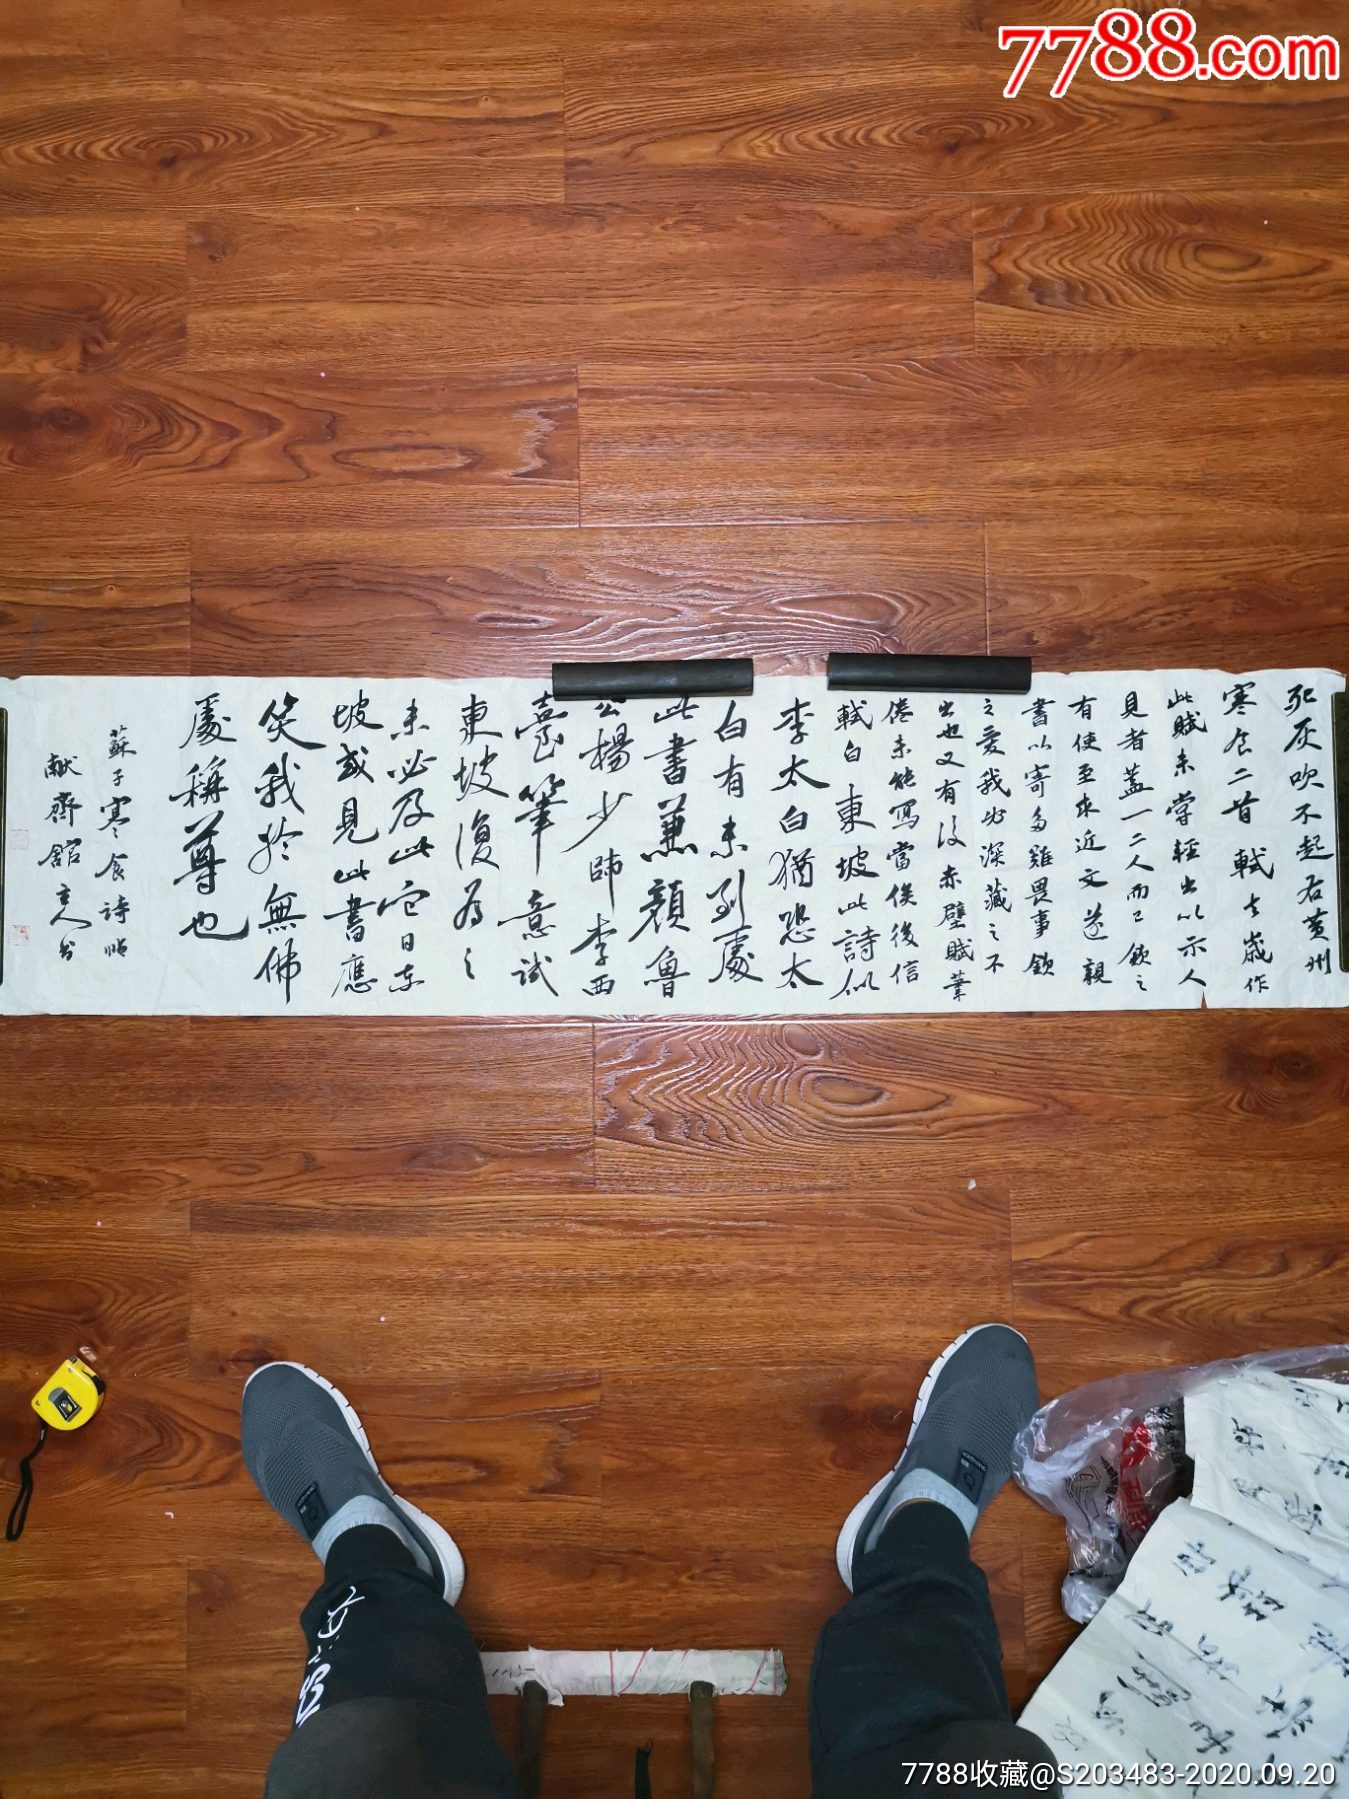 7788.com
死灰吹不起右黄州
寒食二首軾去歲作
此賦未嘗輕出以示人
見者蓋一二人而已欽之
有使至求近文遂親
書以寄多難畏事欽
之愛我必深藏之不
出也又有後赤壁賦筆
倦未能寫當俟後信
軾白東坡此詩似
李太白猶恐太
白有未到處
此書兼顏魯
公楊少師李西
臺筆意試
東坡復為之
未必及此它日東
坡或見此書應
笑我於無佛
處稱尊也
蘇子寒食詩帖
献齋館主人书
7788收藏@S203483-2020.09.20